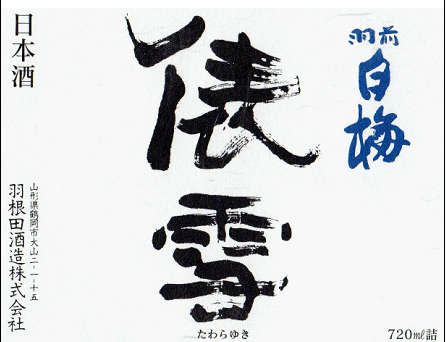 羽前
白梅
俵雪
たわらゆき
日本酒
山形県鶴岡市大山二-一-十五
羽根田酒造株式会社
720ml詰